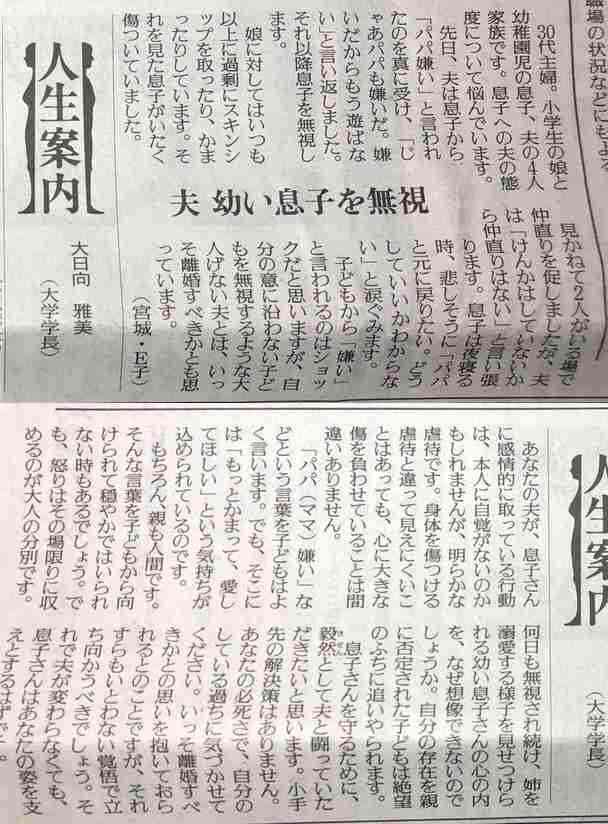 職場の状況などにもよる
人生案内
夫 幼い息子を無視
30代主婦。小学生の娘と
幼稚園児の息子、夫の4人
家族です。息子への夫の態
度について悩んでいます。
先日、夫は息子から
「パパ嫌い」と言われ
たのを真に受け、「じ
ゃあパパも嫌いだ。嫌
いだからもう遊ばな
い」と言い返しました。
それ以降息子を無視し
ます。
娘に対してはいつも
以上に過剰にスキンシ
ップを取ったり、かま
ったりしています。そ
れを見た息子がいたく
傷ついていました。
見かねて2人がいる場で
仲直りを促しましたが、夫
は「けんかはしていないか
ら仲直りはない」と言い張
ります。息子は夜寝る
時、悲しそうに「パパ
と元に戻りたい。どう
していいかわからな
い」と涙ぐみます。
子どもから「嫌い」
と言われるのはショッ
クだと思いますが、自
分の意に沿わない子ど
もを無視するような大
人げない夫とは、いっ
そ離婚すべきかとも思
っています。
(宮城・E子)
大日向 雅美
(大学学長)
人生案内
(大学学長)
あなたの夫が、息子さん
に感情的に取っている行動
は、本人に自覚がないのか
もしれませんが、明らかな
虐待です。身体を傷つける
虐待と違って見えにくいこ
とはあっても、心に大きな
傷を負わせていることは間
違いありません。
「パパ(ママ)嫌い」な
どという言葉を子どもはよ
く言います。でも、そこに
は「もっとかまって、愛し
てほしい」という気持ちが
込められているのです。
もちろん、親も人間です。
そんな言葉を子どもから向
けられて穏やかではいられ
ない時もあるでしょう。で
も、怒りはその場限りに収
めるのが大人の分別です。
何日も無視され続け、姉を
溺愛する様子を見せつけら
れる幼い息子さんの心の内
を、なぜ想像できないので
しょうか。自分の存在を親
に否定された子どもは絶望
のふちに追いやられます。
息子さんを守るために、
毅然として夫と闘っていた
だきたいと思います。小手
先の解決策はありません。
あなたの必死さで、自分の
している過ちに気づかせて
ください。いっそ離婚すべ
きかとの思いを抱いておら
れるとのことですが、それ
すらもいとわない覚悟で立
ち向かうべきでしょう。そ
れで夫が変わらなくても、
息子さんはあなたの姿を支
えとするはずです。